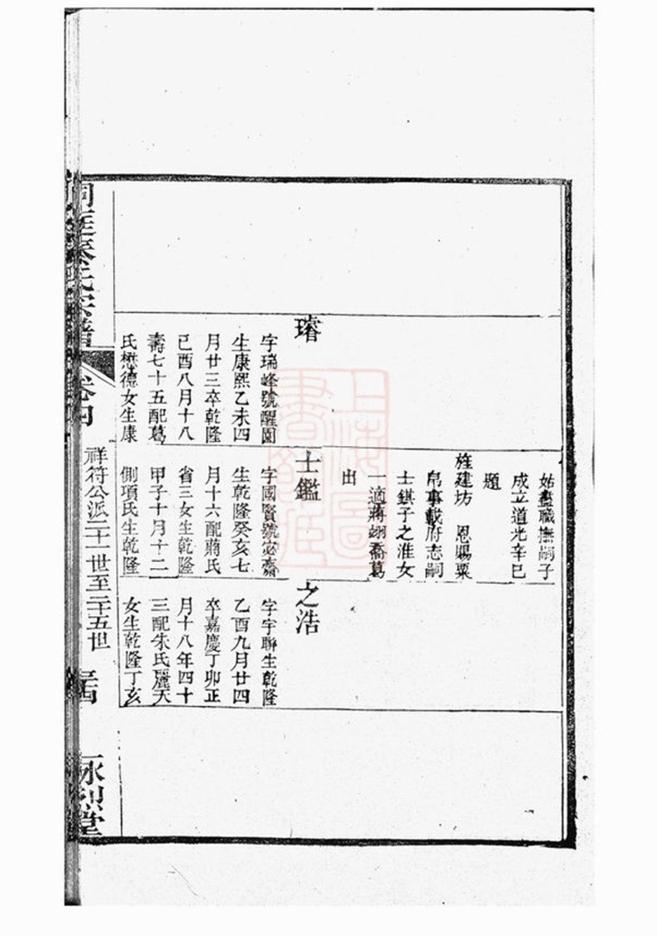 姑盡職撫嗣子
成立道光辛巳
題
旌建坊 恩賜粟
帛事載府志嗣
士錤子之淮女
一適蔣翊喬葛
出
璿
字瑞峰號醒園
生康熙乙未四
月廿三卒乾隆
己酉八月十八
壽七十五配葛
氏懋德女生康
士鑑
字國賢號宓齋
生乾隆癸亥七
月十六配蔣氏
省三女生乾隆
甲子十月十二
側項氏生乾隆
之浩
字宇聯生乾隆
乙酉九月廿四
卒嘉慶丁卯正
月十八年四十
三配朱氏麗天
女生乾隆丁亥
洞庭秦氏宗譜
卷四
祥符公派二十一世至二十五世
永烈堂
上海圖書館藏